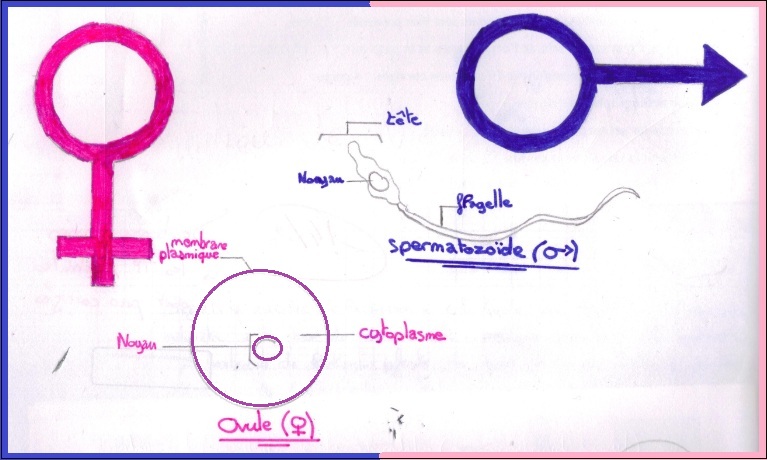 tête
Noyau
flagelle
spermatozoïde (♂)
membrane
plasmique
Noyau
cytoplasme
Ovule (♀)